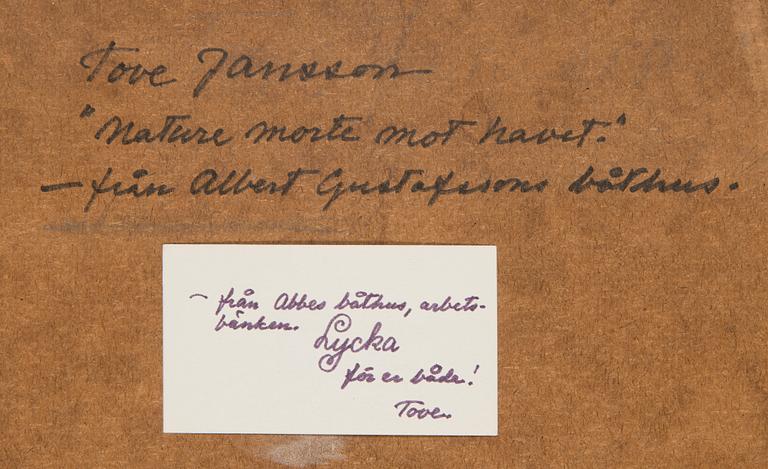 Tove Jansson
"Nature morte mot havet."
— från Albert Gustafssons båthus.
– från Abbes båthus, arbets-
bänken.
Lycka
för er båda!
Tove.